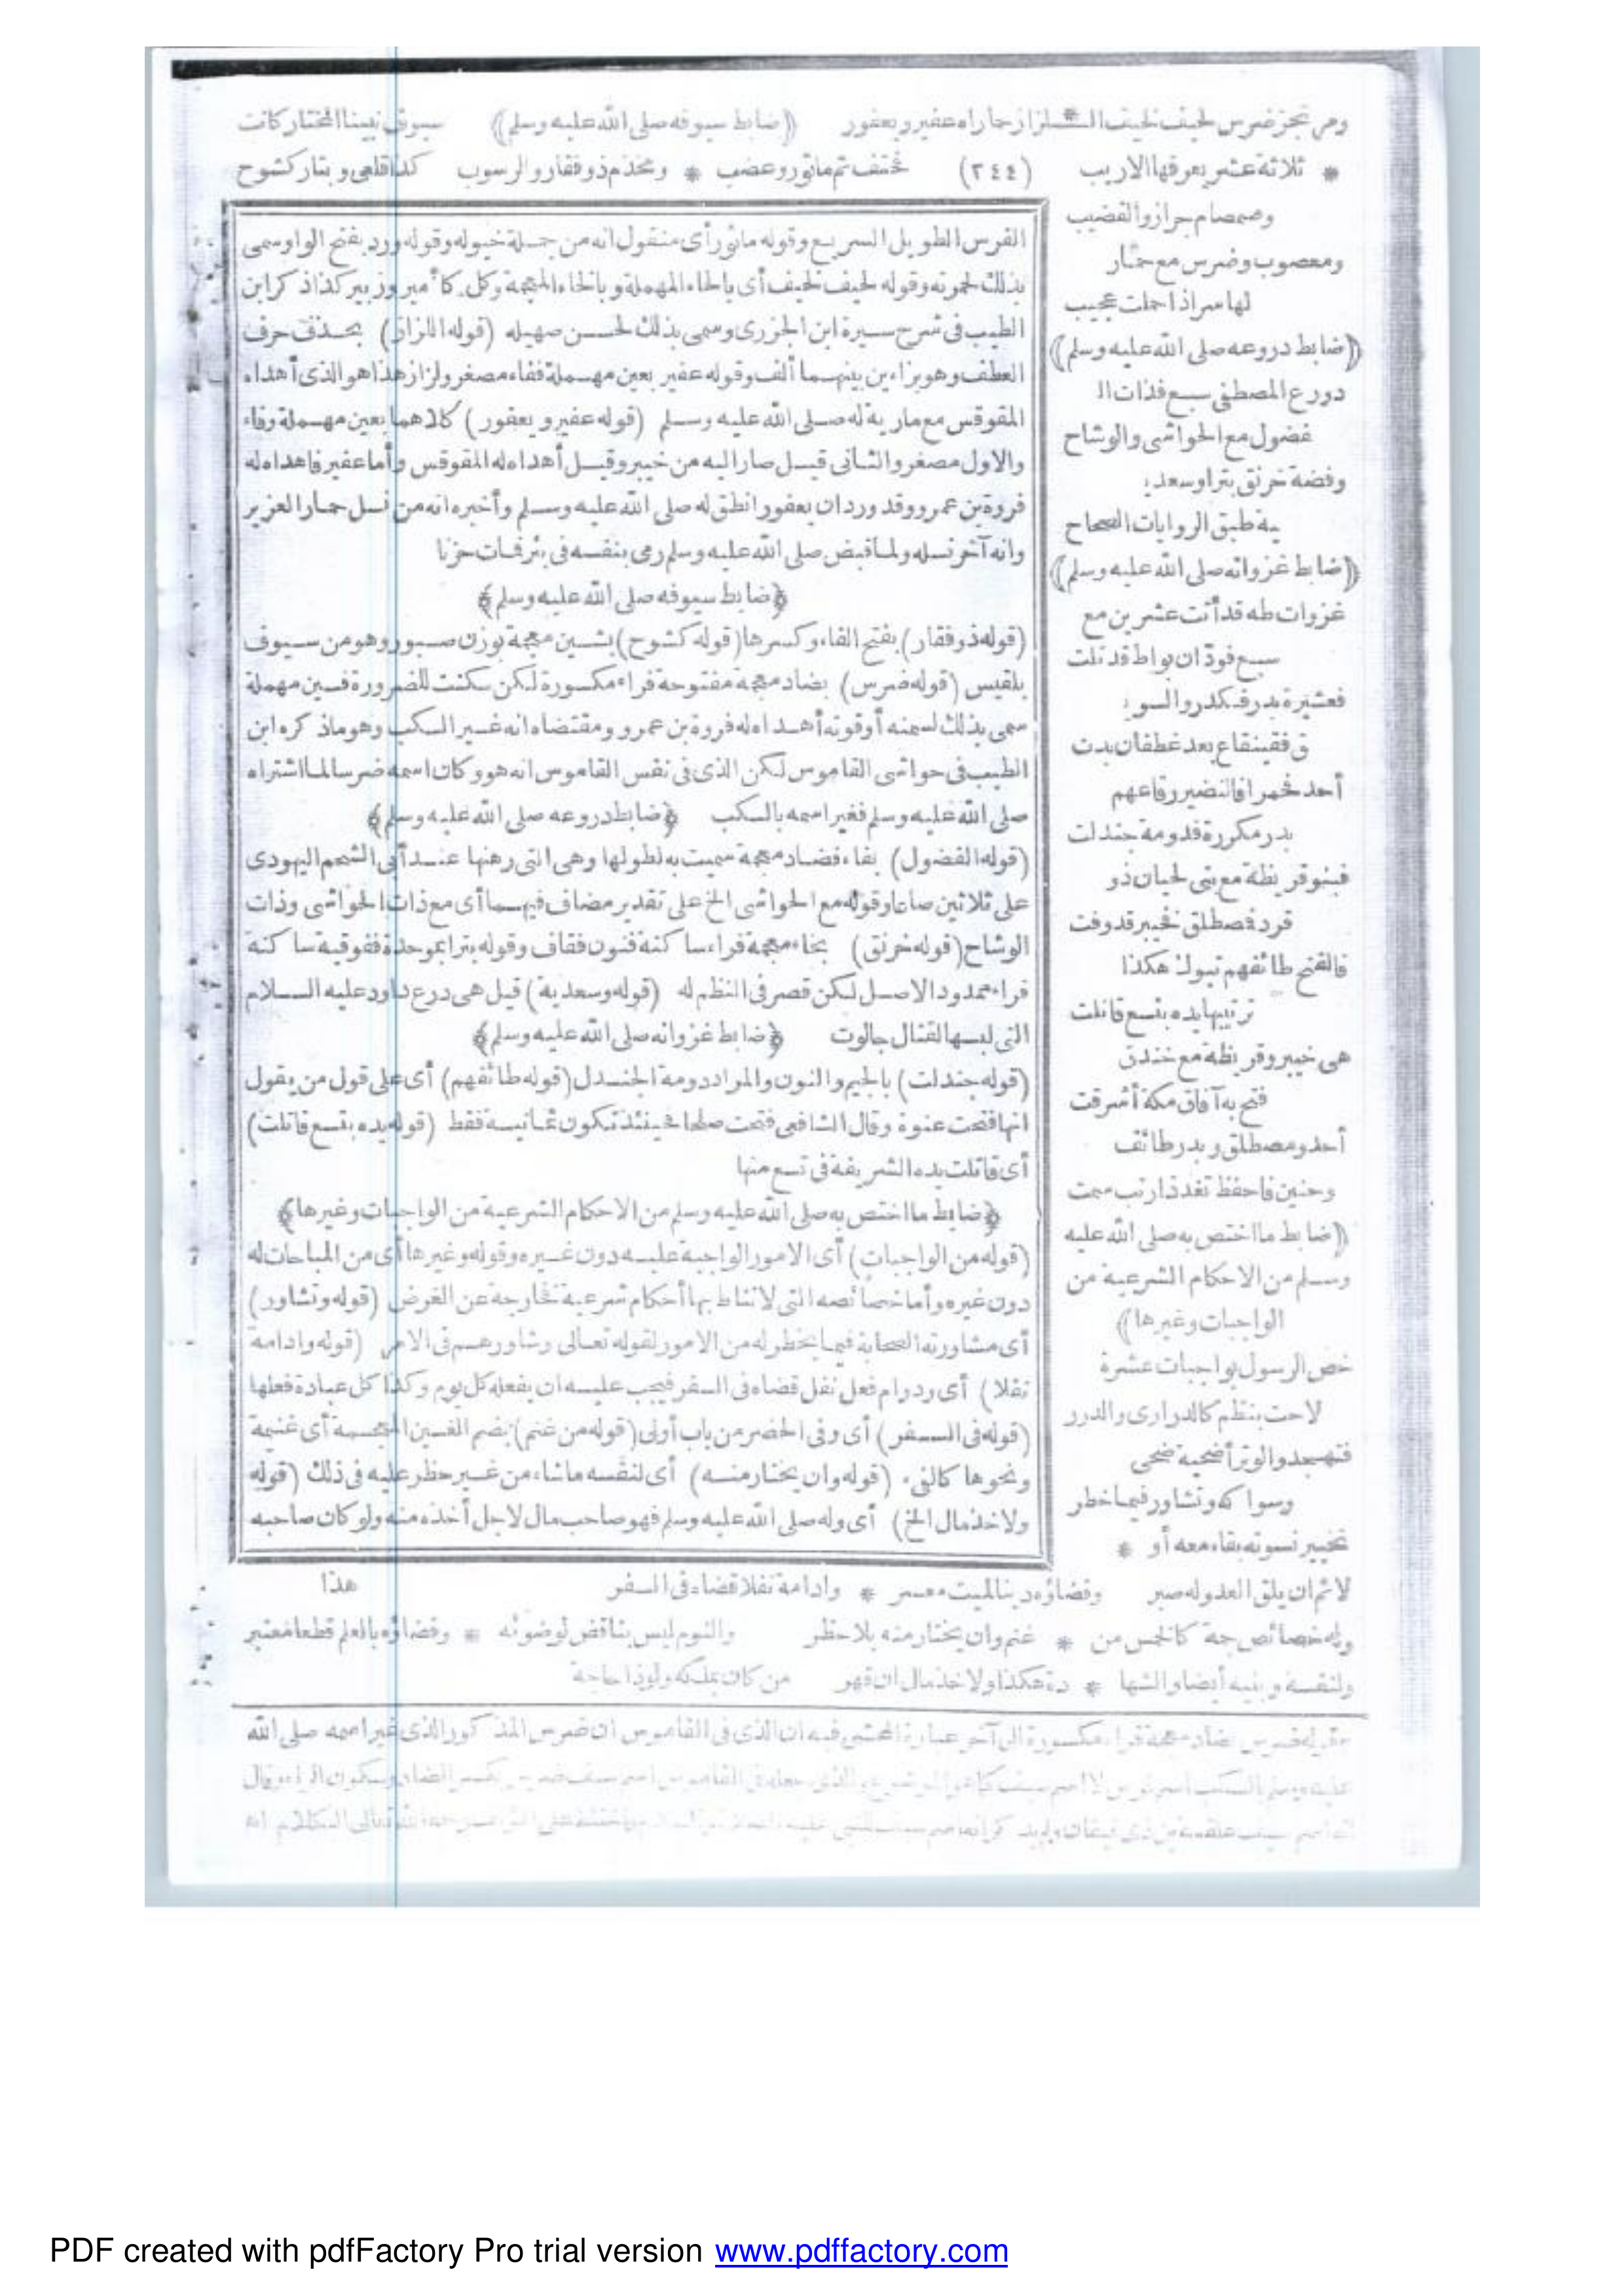 ومرتجز ضرس لحيف لخيف الـ * ـلزاز حماراه عفير ويعفور (ضابط سيوفه صلى الله عليه وسلم) سيوف نبينا المختار كانت
* ثلاثة عشر يعرفها الاريب (٢٤٤) محتف ثم مأثور وعضب * ومخذم ذو فقار والرسوب كذا قلعي وبتار كشوح
وصمصام جراز والقضيب
ومعصوب وضرس مع
لها سر اذا حملت عجيب
(ضابط دروعه صلى الله عليه وسلم)
دورع المصطفى سبع فذات الـ
فضول مع الحواشى والوشاح
وفضة خرنق بترا وسعد
ية طبق الروايات الصحاح
(ضابط غزواته صلى الله عليه وسلم)
غزوات طه قد أتت عشرين مع
سبع فودّان بواط قد تلت
فعشيرة بدر فكدر والسو
ق فقينقاع بعد غطفان بدت
أحد فحمرا فالنضير رقاعهم
بدر مكررة فدومة جندلت
فبنو قريظة مع بنى لحيان ذو
قرد فصطلق فخيبر قد وفت
فالفتح طائفهم تبوك هكذا
ترتيبها يده بتسع قاتلت
هى خيبر وقريظة مع خندق
فتح به آفاق مكة أشرقت
أحد ومصطلق وبدر طائف
وحنين فاحفظ تغد ذا رتب سمت
(ضابط ما اختص به صلى الله عليه
وسلم من الاحكام الشرعية من
الواجبات وغيرها)
خص الرسول بواجبات عشرة
لاحت بنظم كالدرارى والدرر
فتهجد والوتر أضحية ضحى
وسواكه وتشاور فيما خطر
تخيير نسوته بقاء معه أو *
لا ثم ان يلق العدو له صبر وقضاؤه دينا لميت معسر * وادامة نفلا قضاه فى السفر هذا
وله خصائص جمة كالخمس من * غنم وان يختار منه بلا حظر والنوم ليس بناقض لوضوئه * وقضاؤه بالعلم قطعا معتبر
ولنفسه وبنيه أيضا والشها * دة هكذا ولاخذ مال ان قهر من كان يملكه ولو ذا حاجة
الفرس الطويل السريع وقوله مأثور أى منقول انه من جملة خيوله وقوله ورد بفتح الواو سمى
بذلك لحمرته وقوله لحيف لخيف أى بالحاء المهملة وبالخاء المعجمة وكل كأمير وزبير كذا ذكر ابن
الطيب فى شرح سيرة ابن الجزرى وسمى بذلك لحسن صهيله (قوله اللزاز) بحذف حرف
العطف وهو بزاءين بينهما ألف وقوله عفير بعين مهملة ففاء مصغر ولزاز هذا هو الذى أهداه
المقوقس مع مارية له صلى الله عليه وسلم (قوله عفير ويعفور) كلاهما بعين مهملة وفاء
والاول مصغر والثانى قيل صار اليه من خيبر وقيل أهداه له المقوقس وأما عفير فاهداه له
فروة بن عمرو وقد ورد ان يعفور انطق له صلى الله عليه وسلم وأخبره انه من نسل حمار العزير
وانه آخر نسله ولما قبض صلى الله عليه وسلم رمى بنفسه فى بئر فمات حزنا
﴿ضابط سيوفه صلى الله عليه وسلم﴾
(قوله ذو فقار) بفتح الفاء وكسرها (قوله كشوح) بشين معجمة بوزن صبور وهو من سيوف
بلقيس (قوله ضرس) بضاد معجمة مفتوحة فراء مكسورة لكن سكنت للضرورة فسين مهملة
سمى بذلك لسمنه أو قوته أهداه له فروة بن عمرو ومقتضاه انه غير السكب وهو ما ذكره ابن
الطيب فى حواشى القاموس لكن الذى فى نفس القاموس انه هو وكان اسمه ضرسا لما اشتراه
صلى الله عليه وسلم فغير اسمه بالسكب ﴿ضابط دروعه صلى الله عليه وسلم﴾
(قوله الفضول) بفاء فضاد معجمة سميت به لطولها وهى التى رهنها عند أبى الشحم اليهودى
على ثلاثين صاعا وقوله مع الحواشى الخ على تقدير مضاف فيهما أى مع ذات الحواشى وذات
الوشاح (قوله خرنق) بخاء معجمة فراء ساكنة فنون فقاف وقوله بترا بموحدة ففوقية ساكنة
فراء ممدود الاصل لكن قصر فى النظم له (قوله وسعدية) قيل هى درع داود عليه السلام
التى لبسها لقتال جالوت ﴿ضابط غزواته صلى الله عليه وسلم﴾
(قوله جندلت) بالجيم والنون والمراد دومة الجندل (قوله طائفهم) أى على قول من يقول
انها فتحت عنوة وقال الشافعى فتحت صلحا فحينئذ تكون ثمانية فقط (قوله يده بتسع قاتلت)
أى قاتلت يده الشريفة فى تسع منها
﴿ضابط ما اختص به صلى الله عليه وسلم من الاحكام الشرعية من الواجبات وغيرها﴾
(قوله من الواجبات) أى الامور الواجبة عليه دون غيره وقوله وغيرها أى من المباحات له
دون غيره وأما خصائصه التى لا تناط بها أحكام شرعية فخارجة عن الغرض (قوله وتشاور)
أى مشاورته الصحابة فيما يخطر له من الامور لقوله تعالى وشاورهم فى الامر (قوله وادامة
نفلا) أى ودوام فعل نفل قضاه فى السفر فيجب عليه ان يفعله كل يوم وكذا كل عبادة فعلها
(قوله فى السفر) أى وفى الحضر من باب أولى (قوله من غنم) بضم الغين المعجمة أى غنيمة
ونحوها كالفىء (قوله وان يختار منه) أى لنفسه ما شاء من غير حظر عليه فى ذلك (قوله
ولاخذ مال الخ) أى وله صلى الله عليه وسلم قهر صاحب مال لاجل أخذه منه ولو كان صاحبه
قوله ضرس بضاد معجمة فراء مكسورة الى آخر عبارة المحشى فيه ان الذى فى القاموس ان ضرس المذكور الذى غير اسمه صلى الله
عليه وسلم بالسكب اسم فرس لا اسم سيف كما هو
PDF created with pdfFactory Pro trial version www.pdffactory.com